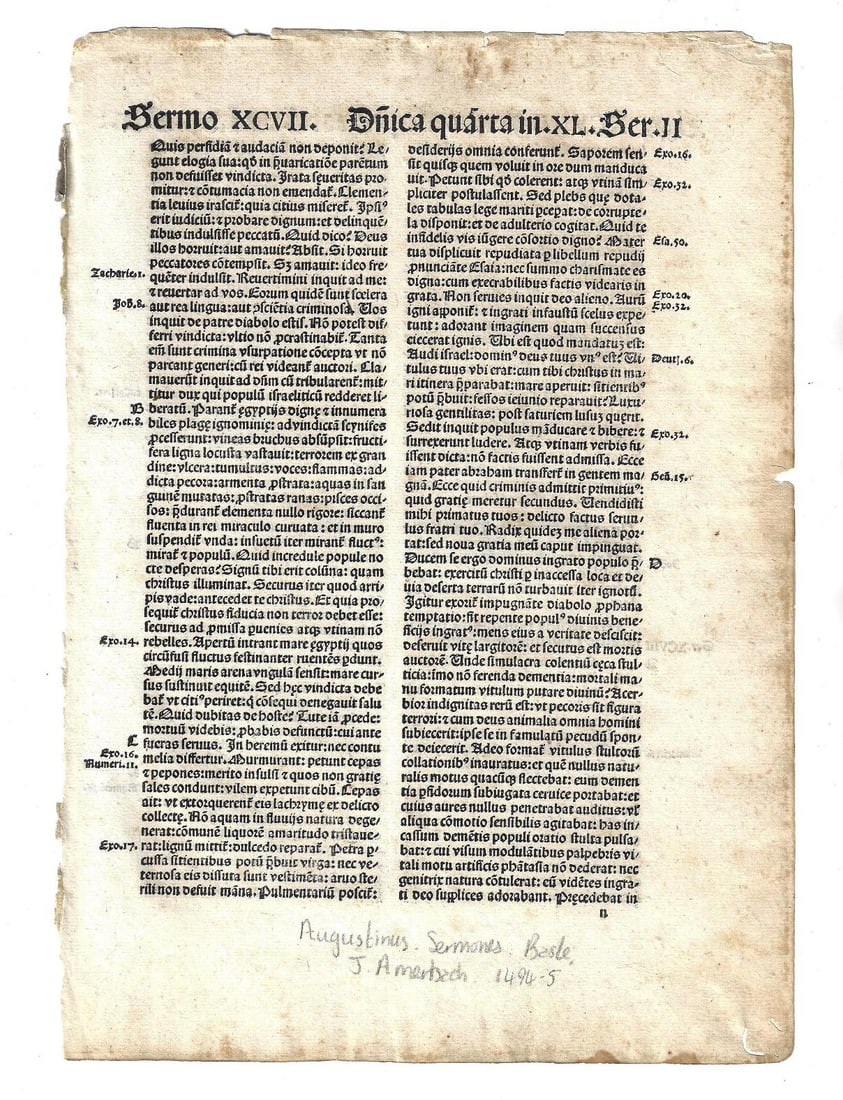 Sermo XCVII. Dñica quarta in .XL. Ser. II
Quis perfidiã ⁊ audaciã non deponit? Le/
gunt elogia sua: qď in p̃uaricatiõe parẽtum
non defuisset vindicta. Irata seueritas pro/
mitur: ⁊ cõtumacia non emendat̃. Clemen/
tia leuius irascit̃: quia citius miseret̃. Ipsiꝰ
erit iudiciũ: ⁊ probare dignum: et delinquẽ/
tibus indulsisse peccatũ. Quid dico? Deus
illos horruit: aut amauit? Absit. Si horruit
peccatores cõtempsit. Sꝫ amauit: ideo fre/
Zacharie.1.
quẽter indulsit. Reuertimini inquit ad me:
⁊ reuertar ad vos. Eorum quidẽ sunt scelera
Joh̃.8.
aut rea lingua: aut ꝓsciẽtia criminosa. Uos
inquit de patre diabolo estis. Nõ potest dif/
ferri vindicta: vltio nõ ꝓcrastinabit̃. Tanta
em̃ sunt crimina vsurpatione cõcepta vt nõ
parcant generi: cũ rei videant̃ auctori. Cla/
mauerũt inquit ad dñm cũ tribularent̃: mit/
titur dux qui populũ israeliticũ redderet li/
B
beratũ. Parant̃ ęgyptijs dignę ⁊ innumera
Exo.7.et.8.
biles plagę ignominię: ad vindictã scynifes
ꝓcesserunt: vineas bruchus absũpsit: fructi/
fera ligna locusta vastauit: terrorem ex gran
dine: vlcera: tumultus: voces: flammas: ad/
dicta pecora: armenta ꝓstrata: aquas in san
guinẽ mutatas: ꝓstratas ranas: pisces occi/
sos: p̃durant̃ elementa nullo rigore: siccant̃
fluenta in rei miraculo curuata: et in muro
suspendit̃ vnda: insuetũ iter mirant̃ fluctꝰ:
mirat̃ ⁊ populũ. Quid incredule popule no
cte desperas? Signũ tibi erit colũna: quam
christus illuminat. Securus iter quod arri/
pis vade: antecedet te christus. Et quia pro/
sequit̃ christus fiducia non terror debet esse:
securus ad ꝓmissa ꝑuenies atqꝫ vtinam nõ
Exo.14.
rebelles. Apertũ intrant mare ęgyptij quos
circũfusi fluctus festinanter ruentes ꝑdunt.
Medij maris arena vngulã sensit: mare cur/
sus sustinuit equitẽ. Sed hęc vindicta debe
bat̃ vt citiꝰ periret: q̃ cõsequi denegauit salu
tẽ. Quid dubitas de hoste? Tute iã ꝓcede:
mortuũ videbis: ꝓbabis defunctũ: cui ante
C
fueras seruus. In heremũ exitur: nec contu
Exo.16.
melia differtur. Murmurant: petunt cepas
Numeri.11.
⁊ pepones: merito insulsi ⁊ quos non gratię
sales condunt: vilem expetunt cibũ. Cepas
ait: vt extorquerent̃ eis lachrymę ex delicto
collectę. Nõ aquam in fluuijs natura dege/
nerat: cõmunẽ liquorẽ amaritudo tristaue/
Exo.17.
rat: lignũ mittit̃: dulcedo reparat̃. Petra ꝑ/
cussa sitientibus potũ p̃buit virga: nec ve/
ternosa eis dissuta sunt vestimẽta: aruo ste/
rili non defuit mãna. Pulmentariũ poscit̃:
desiderijs omnia conferunt̃. Saporem sen/
Exo.16.
sit quisqꝫ quem voluit in ore dum manduca
uit. Petunt sibi qď colerent: atqꝫ vtinã sim/
Exo.32.
pliciter postulassent. Sed plebs quę dota/
les tabulas lege mariti p̃cepat: de corrupte/
la disponit: et de adulterio cogitat. Quid te
infidelis vis iũgere cõsortio digno? Mater
Esa.50.
tua displicuit repudiata ꝑ libellum repudij
ꝓnunciãte Esaia: nec summo charismate es
digna: cum execrabilibus factis videaris in
grata. Non seruies inquit deo alieno. Aurũ
Exo.20.
igni apponit̃: ⁊ ingrati infaustũ scelus expe/
Exo.32.
tunt: adorant imaginem quam succensus
eiecerat ignis. Ubi est quod mandatuꝫ est:
Audi israel: dominꝰ deus tuus vnꝰ est? Ui/
Deut̃.6.
tulus tuus vbi erat: cum tibi christus in ma/
ri itinera p̃parabat: mare aperuit: sitientibꝰ
potũ p̃buit: fessos ieiunio reparauit? Luxu/
riosa gentilitas: post saturiem lusuꝫ quęrit.
Sedit inquit populus mãducare ⁊ bibere: ⁊
Exo.32.
surrexerunt ludere. Atqꝫ vtinam verbis fu/
issent dicta: nõ factis fuissent admissa. Ecce
iam pater abraham transfert̃ in gentem ma/
Geñ.15.
gnã. Ecce quid criminis admittit primitiuꝰ:
quid gratię meretur secundus. Uendidisti
mihi primatus tuos: delicto factus seruu/
lus fratri tuo. Radix quideꝫ me aliena por/
tat: sed noua gratia meũ caput impinguat.
Ducem se ergo dominus ingrato populo p̃/
D
bebat: exercitũ christi ꝑ inaccessa loca et de/
uia deserta terrarũ nõ turbauit iter ignotũ.
Igitur exorit̃ impugnãte diabolo ꝓphana
temptatio: sit repente populꝰ diuinis bene/
ficijs ingratꝰ: mens eius a veritate desciscit:
deseruit vitę largitorẽ: et secutus est mortis
auctorẽ. Unde simulacra colentiũ cęca stul/
ticia: imo nõ ferenda dementia: mortali ma/
nu formatum vitulum putare diuinũ? Acer/
bior indignitas rerũ est: vt pecoris sit figura
terrori: ⁊ cum deus animalia omnia homini
subiecerit: ipse se in famulatũ pecudũ spon/
te deiecerit. Adeo format̃ vitulus stultorũ
collationibꝰ inauratus: et quẽ nullus natu/
ralis motus quacũqꝫ flectebat: eum demen
tia ꝑfidorum subiugata ceruice portabat: et
cuius aures nullus penetrabat auditus: vľ
aliqua cõmotio sensibilis agitabat: has in/
cassum demẽtis populi oratio stulta pulsa/
bat: ⁊ cui visum modulãtibus palpebris vi/
tali motu artificis phãtasia nõ dederat: nec
genitrix natura cõtulerat: eũ vidẽtes ingra/
ti deo supplices adorabant. Pręcedebat in
n
Augustinus. Sermones. Basle,
J. Amerbach 1494-5